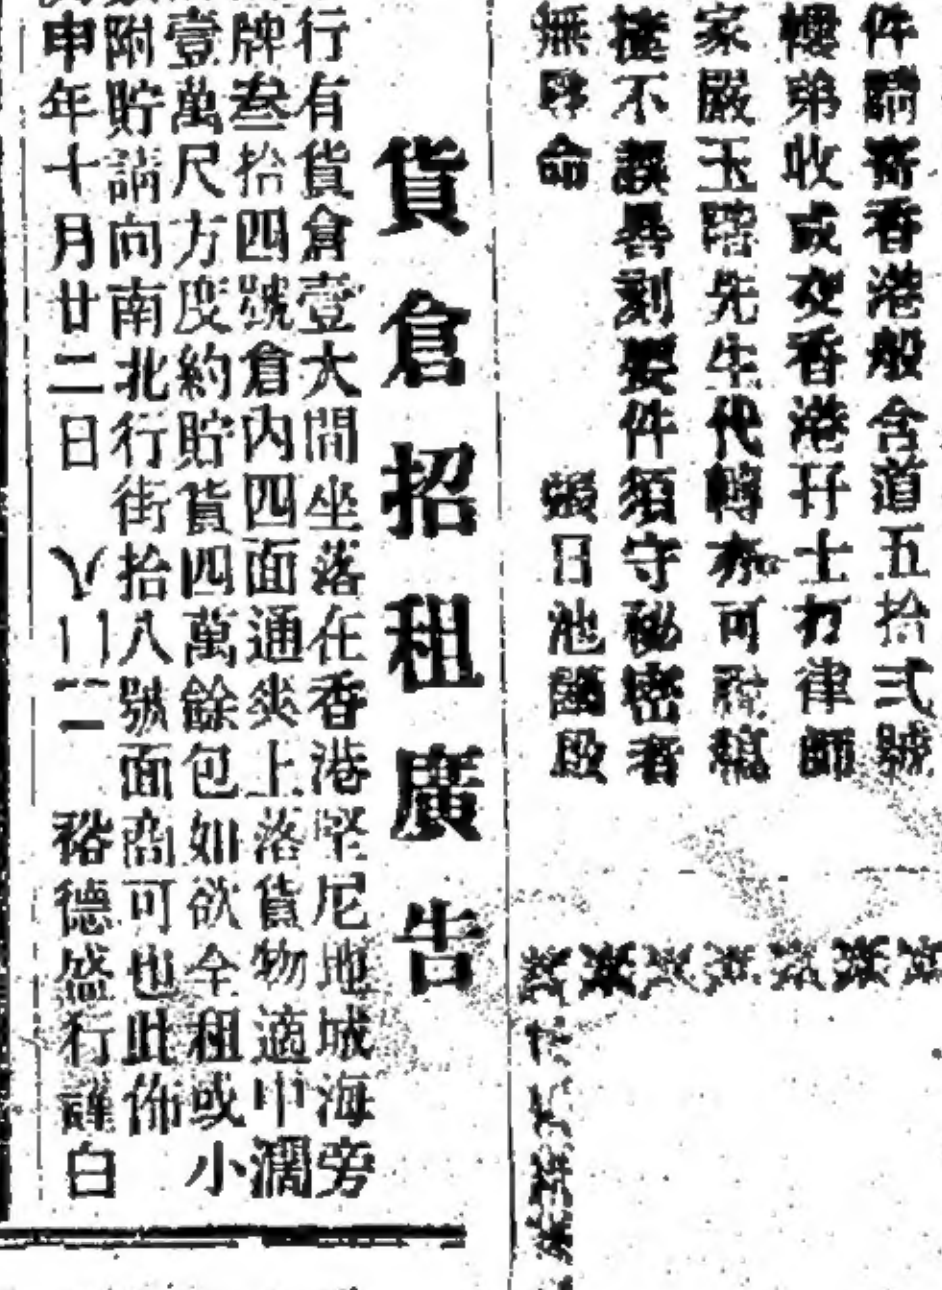 件請寄香港般含道五拾弍號
樓弟收或交香港孖士打律師
家嚴玉階先生代轉亦可
不誤晷刻要件須守秘密者
無 命 張日池 啟
貨倉招租廣告
行有貨倉壹大間坐落在香港堅尼地城海旁
牌叁拾四號倉內四面通爽上落貨物適中濶
壹萬尺方度約貯貨四萬餘包如欲全租或小
附貯請向南北行街拾八號面商可也此佈
申年十月廿二日 裕德盛行謹白